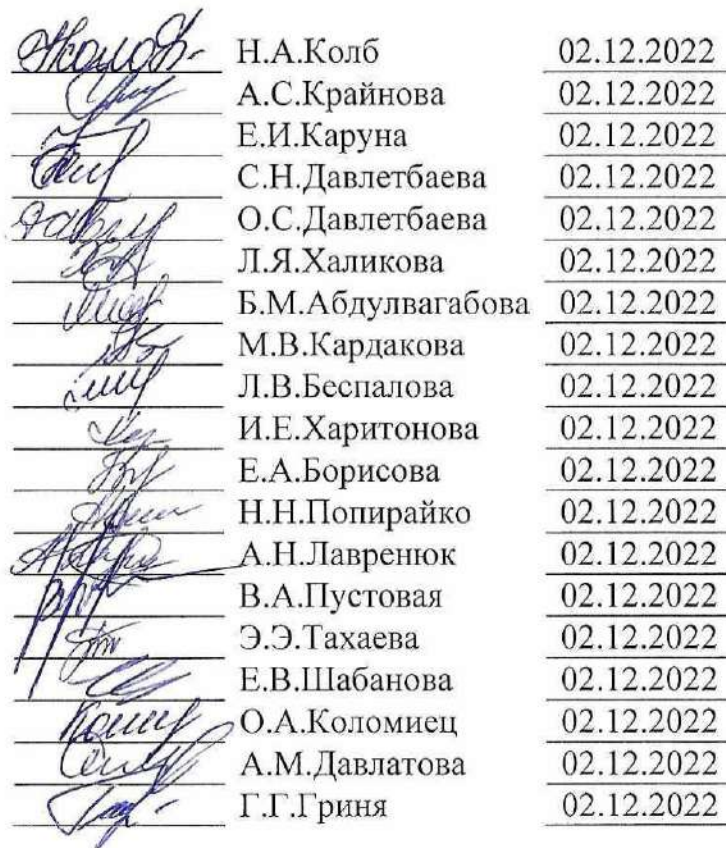 Н.А.Колб 02.12.2022
А.С.Крайнова 02.12.2022
Е.И.Каруна 02.12.2022
С.Н.Давлетбаева 02.12.2022
О.С.Давлетбаева 02.12.2022
Л.Я.Халикова 02.12.2022
Б.М.Абдулвагабова 02.12.2022
М.В.Кардакова 02.12.2022
Л.В.Беспалова 02.12.2022
И.Е.Харитонова 02.12.2022
Е.А.Борисова 02.12.2022
Н.Н.Попирайко 02.12.2022
А.Н.Лавренюк 02.12.2022
В.А.Пустовая 02.12.2022
Э.Э.Тахаева 02.12.2022
Е.В.Шабанова 02.12.2022
О.А.Коломиец 02.12.2022
А.М.Давлатова 02.12.2022
Г.Г.Гриня 02.12.2022